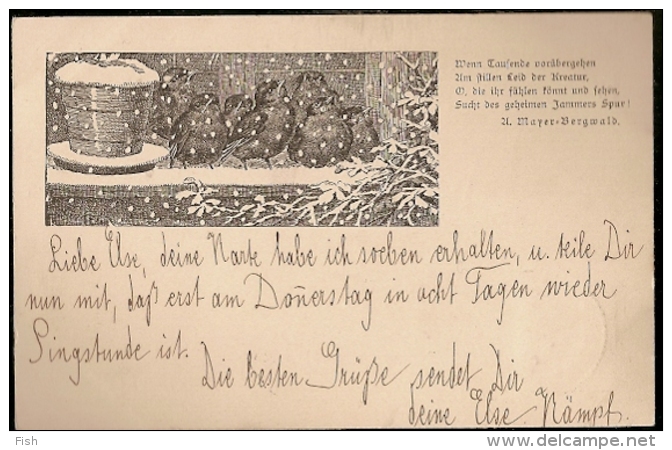 Wenn Tausende vorübergehen
Am stillen Leid der Kreatur,
O, die ihr fühlen könnt und sehen,
Sucht des geheimen Jammers Spur!
A. Mayer-Bergwald.
Liebe Else, deine Karte habe ich soeben erhalten, u. teile Dir
nun mit, daß erst am Don̄erstag in acht Tagen wieder
Singstunde ist.
Die besten Grüße sendet Dir
deine Else Kämpf.
Fish
www.delcampe.net